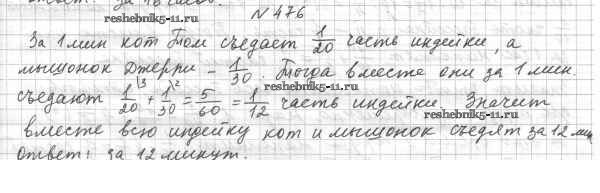 ответ: за 18 часов.
N 476
reshebnik5-11.ru
За 1 мин кот Том съедает 1/20 часть индейки, а
мышонок Джерри - 1/30. Тогда вместе они за 1 мин.
съедают 1/20 \3 + 1/30 \2 = 5/60 = 1/12 часть индейки. Значит
reshebnik5-11.ru
вместе всю индейку кот и мышонок съедят за 12 мин
Ответ: за 12 минут.
reshebnik5-11.ru